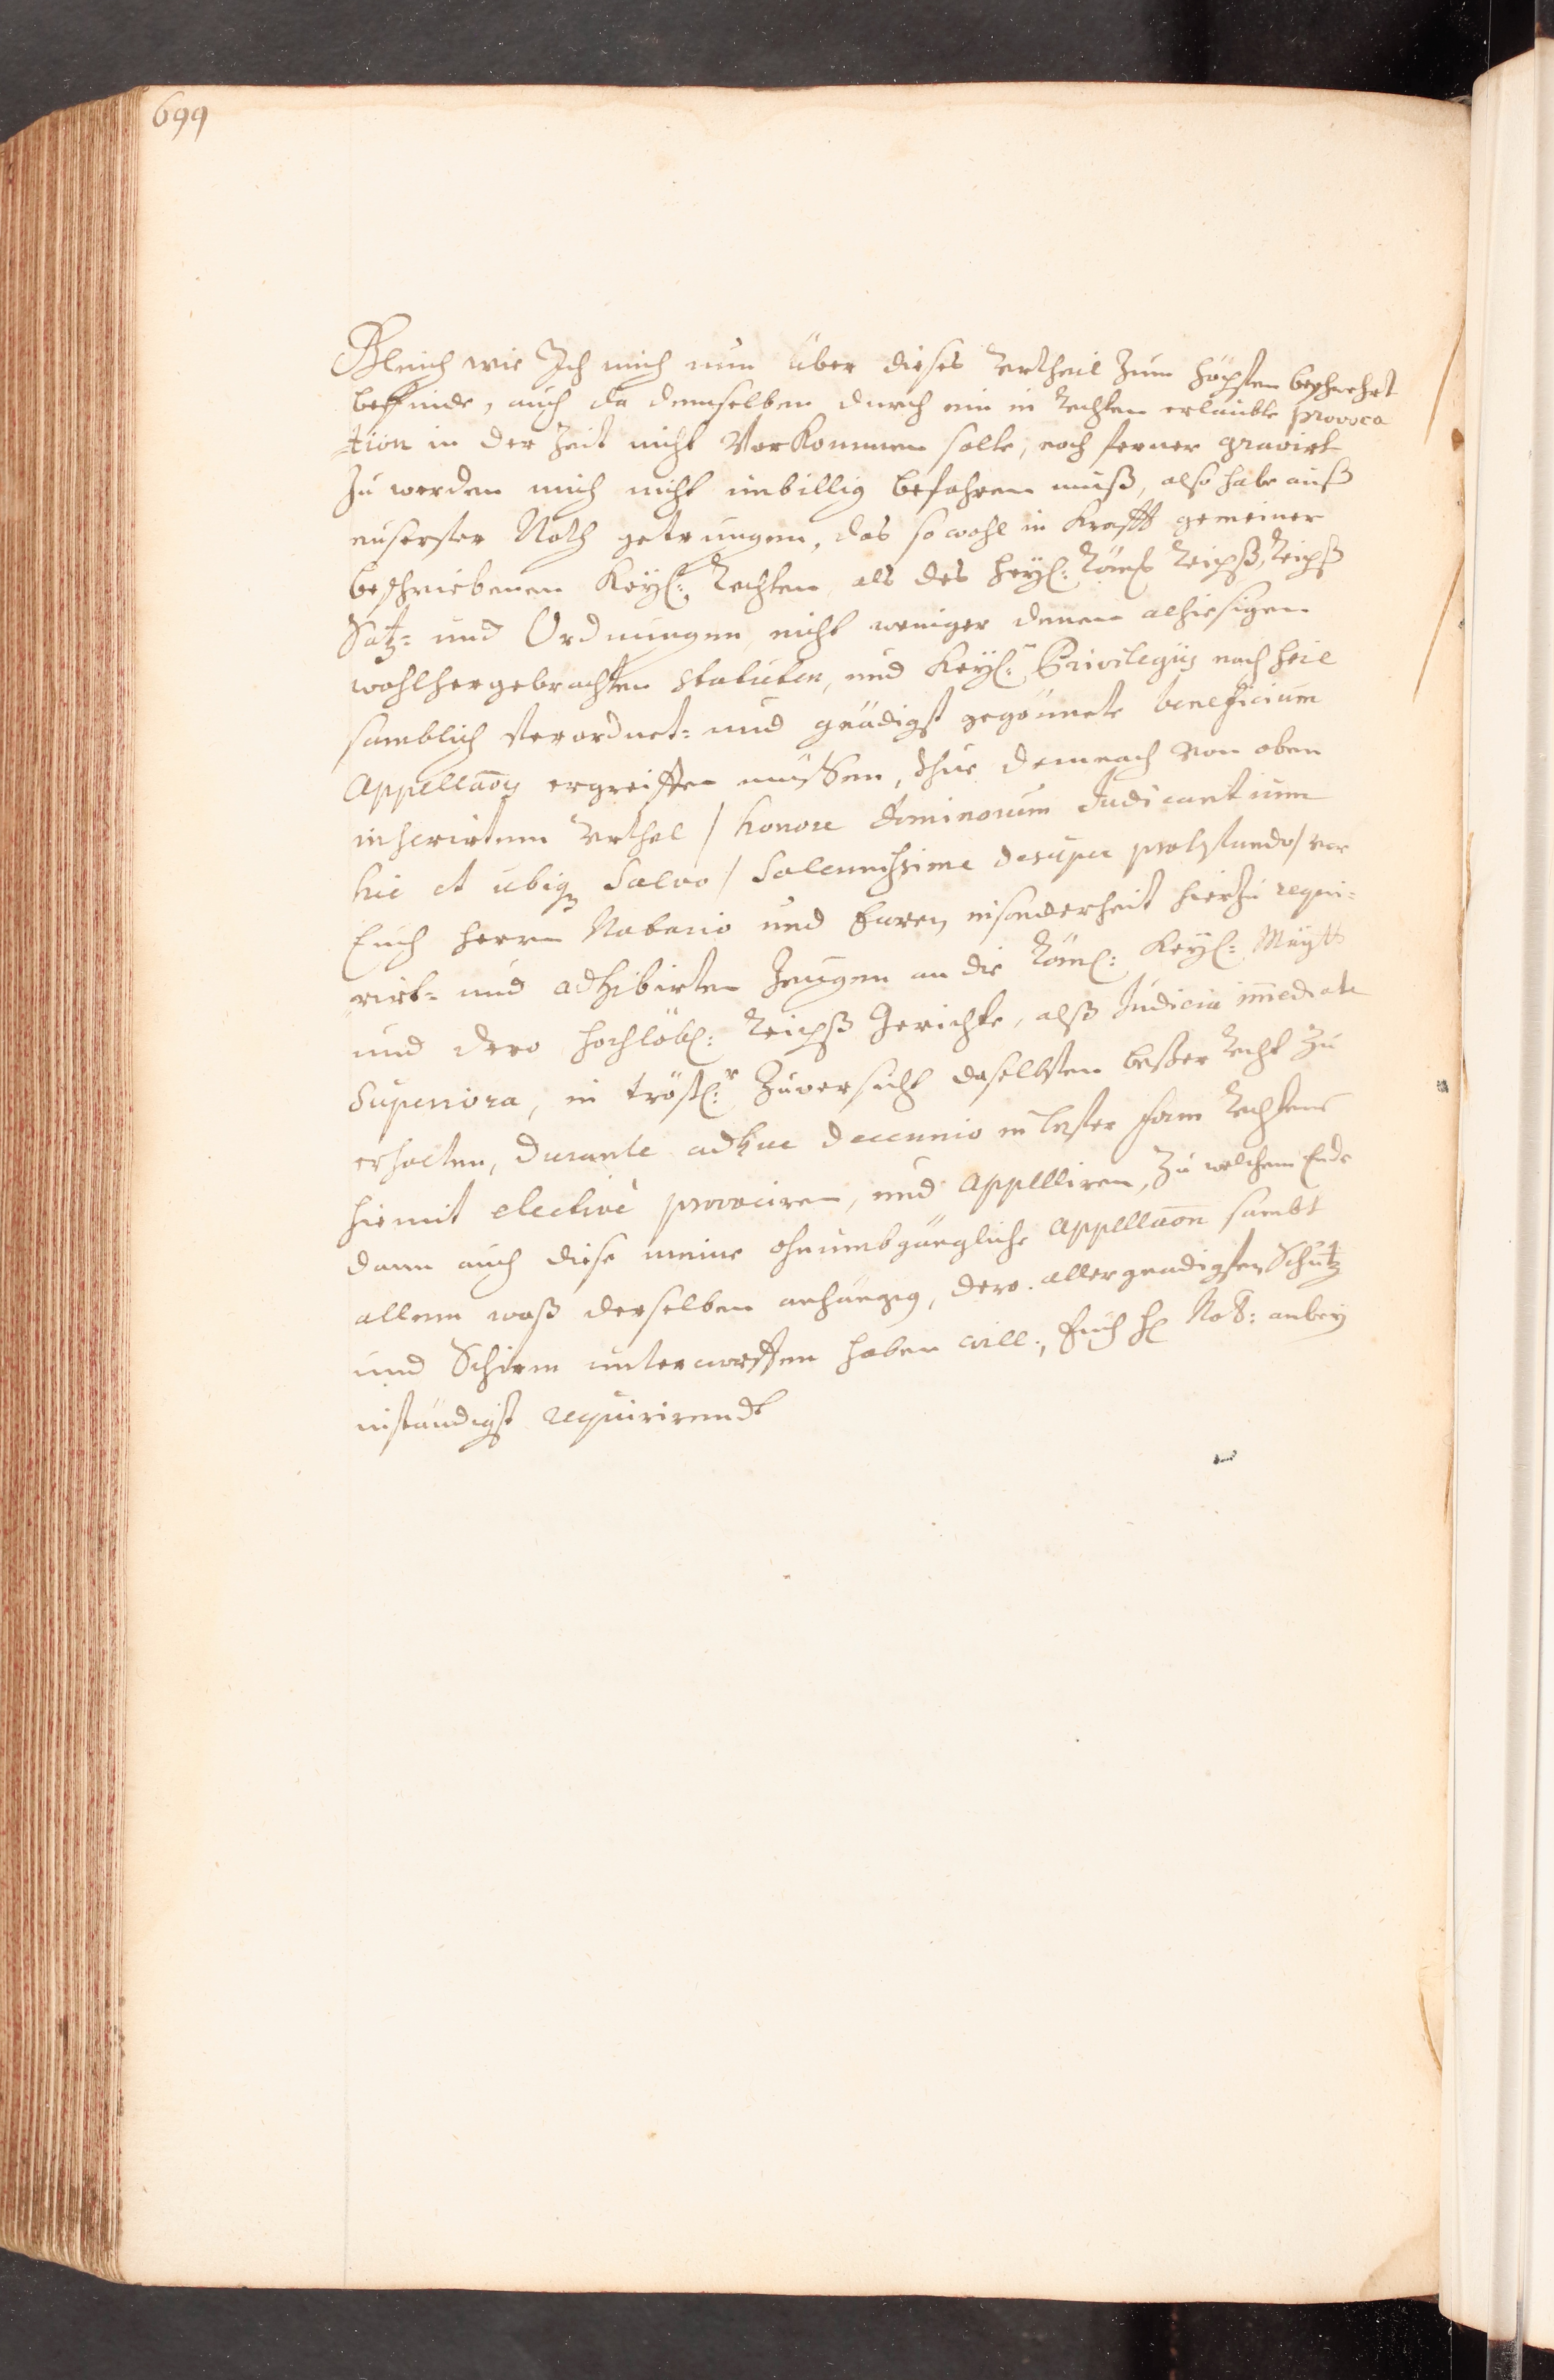 699
Gleich wie Ich mich nun über dieses Vrtheil zum höchsten beschwehrt
befinde, auch da demselben durch ein in Rechten erlaubte provoca
tion in der Zeit nicht Vorkommen solte, noch ferner gravirt
zu werden mich nicht unbillig befahren muß, also habe auß
eusserster Noth getrungen, das so wohl in Krafft gemeiner
beschriebenen Keyl: Rechten, als des Heyl: Röml Reichß, Reichß
Satz= und Ordnungen, nicht weniger denen alhiesigen
wohlhergebrachten Statuten, und Keyl:n Privilegijs noch heil
samblich verordnet= und gnädigst gegönnete beneficium
Appellaōis ergreiffen müssen, thue demnach von oben
inserirtem Vrthel / honore dominorum Judicantium
hic et ubiq₃ Salvo / Solennissime desuper protestando / vor
Euch Herrn Notario und Euren insonderheit hierzu requi=
rirt= und adhibirten Zeugen an die Röml: Keyl: Maytt
und dero hochlöbl: Reichß Gerichte, alß Judicia imediate
Superiora, in tröstl:r Zuversicht daselbsten besser Recht zu
erhalten, durante adhuc decennio in bester form Rechtens
hiemit electivè provociren, und Appelliren, zu welchem Ende
dann auch diese meine ohnumbgängliche Appellaōn sambt
allem waß derselben anhängig, dero allergnädigsten Schutz
und Schirm unterworffen haben will, Euch Hl Not: anbey
inständigst requirirendt